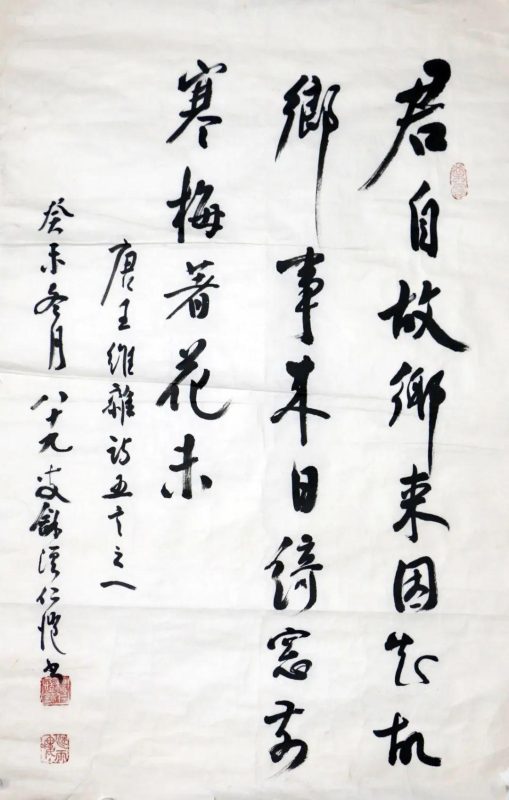 君自故鄉来因知故
鄉事来日綺窓前
寒梅著花未
唐王維雜詩五言之一
癸未冬月八十九叟龢溪仁愷書